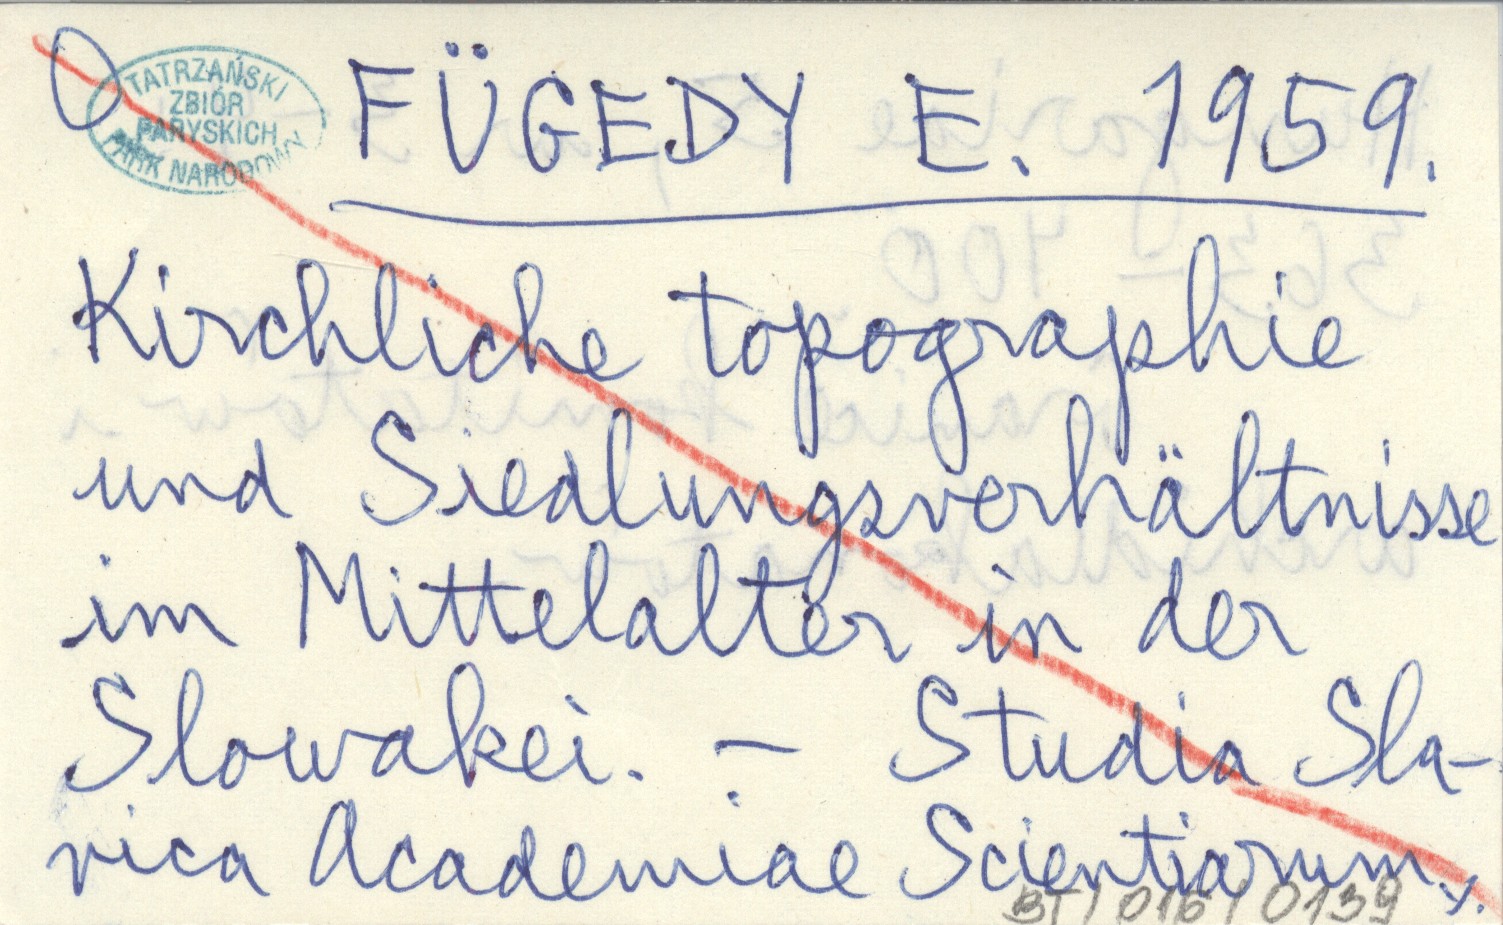 TATRZAŃSKI
ZBIÓR
PARYSKICH
PARK NARODOWY
FÜGEDY E. 1959.
Kirchliche topographie
und Siedlungsverhältnisse
im Mittelalter in der
Slowakei. – Studia Sla-
vica Academiae Scientiarum
BT/016/0139